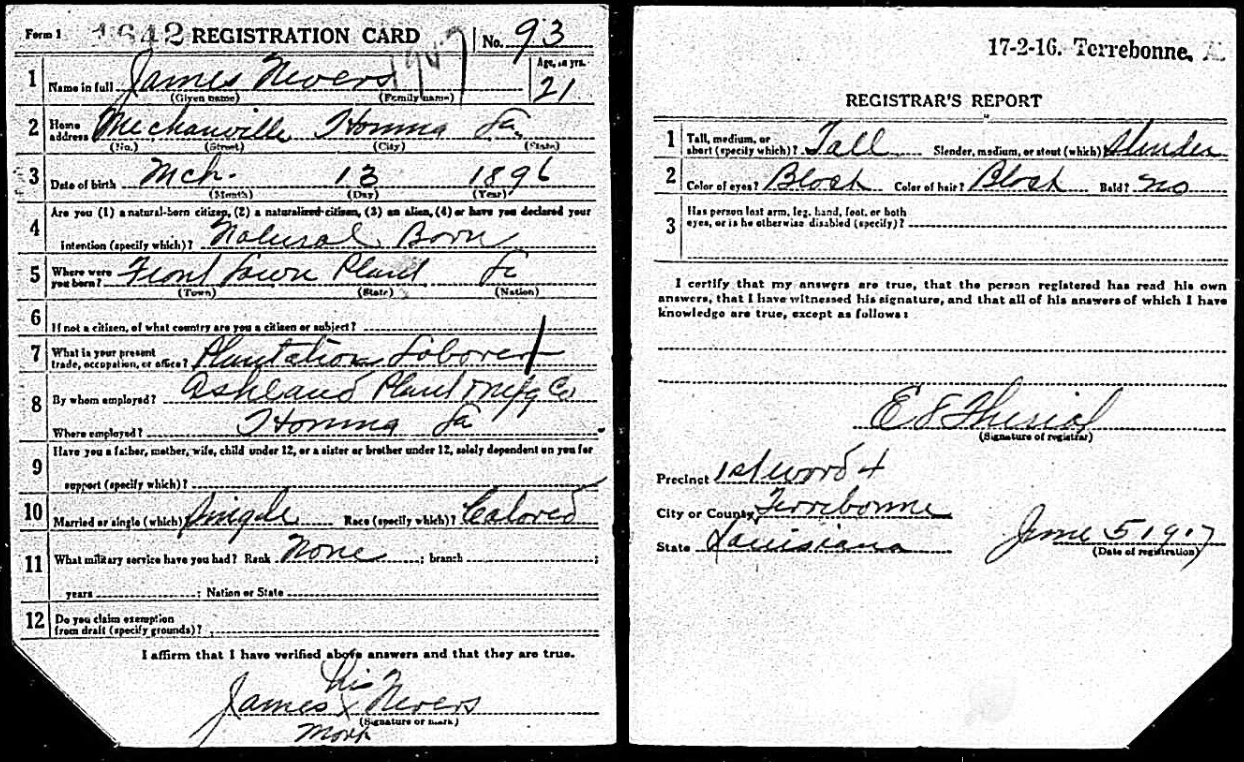 Form 1 1642 REGISTRATION CARD No. 93
1 Name in full James Nevers Age, in yrs. 21
(Given name) (Family name)
2 Home address Mechanville Homma La
(No.) (Street) (City) (State)
3 Date of birth Mch. 13 1896
(Month) (Day) (Year)
4 Are you (1) a natural-born citizen, (2) a naturalized citizen, (3) an alien, (4) or have you declared your
intention (specify which)? Natural Born
5 Where were you born? Front Lawn Plant La
(Town) (State) (Nation)
6 If not a citizen, of what country are you a citizen or subject?
7 What is your present trade, occupation, or office? Plantation Laborer
8 By whom employed? Ashland Plant Mfg Co
Where employed? Homma La
9 Have you a father, mother, wife, child under 12, or a sister or brother under 12, solely dependent on you for
support (specify which)?
10 Married or single (which) Single Race (specify which)? Colored
11 What military service have you had? Rank None ; branch ;
years ; Nation or State
12 Do you claim exemption from draft (specify grounds)?
I affirm that I have verified above answers and that they are true.
his
James x Nevers
(Signature or mark)
Mark
17-2-16. Terrebonne, A.
REGISTRAR'S REPORT
1 Tall, medium, or short (specify which)? Tall Slender, medium, or stout (which)? Slender
2 Color of eyes? Black Color of hair? Black Bald? No
3 Has person lost arm, leg, hand, foot, or both
eyes, or is he otherwise disabled (specify)?
I certify that my answers are true, that the person registered has read his own
answers, that I have witnessed his signature, and that all of his answers of which I have
knowledge are true, except as follows:
(Signature of registrar)
Precinct 1st word 4
City or County Terrebonne
State Louisiana June 5 1917
(Date of registration)